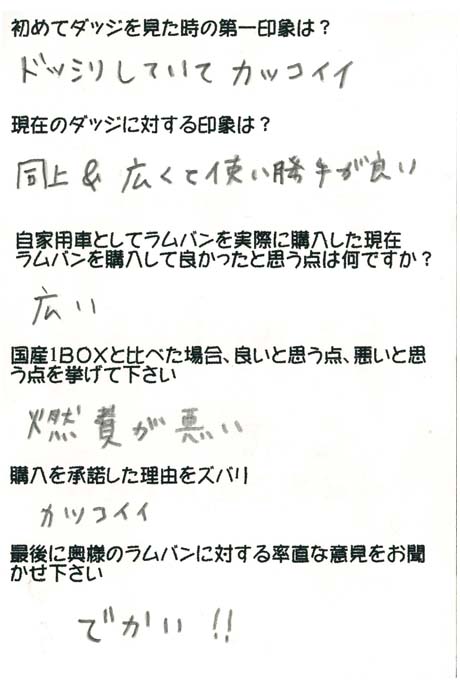 初めてダッジを見た時の第一印象は？
ドッシリしていて カッコイイ
現在のダッジに対する印象は？
同上 & 広くて使い勝手が良い
自家用車としてラムバンを実際に購入した現在
ラムバンを購入して良かったと思う点は何ですか？
広い
国産1BOXと比べた場合、良いと思う点、悪いと思
う点を挙げて下さい
燃費が悪い
購入を承諾した理由をズバリ
カッコイイ
最後に奥様のラムバンに対する率直な意見をお聞
かせ下さい
でかい!!